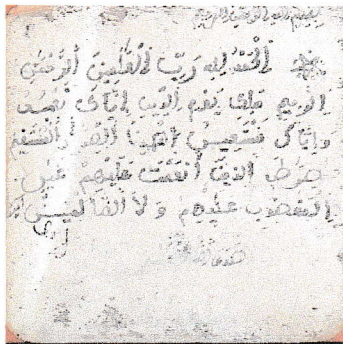 بسم الله الرحمن الرحيم
اَلْحَمْدُ لِلهِ رَبِّ الْعَلَمِينَ الرَّحْمَنِ
الرحيم ملك يوم الدين اياك نعبد
واياك نستعين اهدنا الصرط المستقيم
صرط الذين أنعمت عليهم غير
المغضوب عليهم ولا الضالين